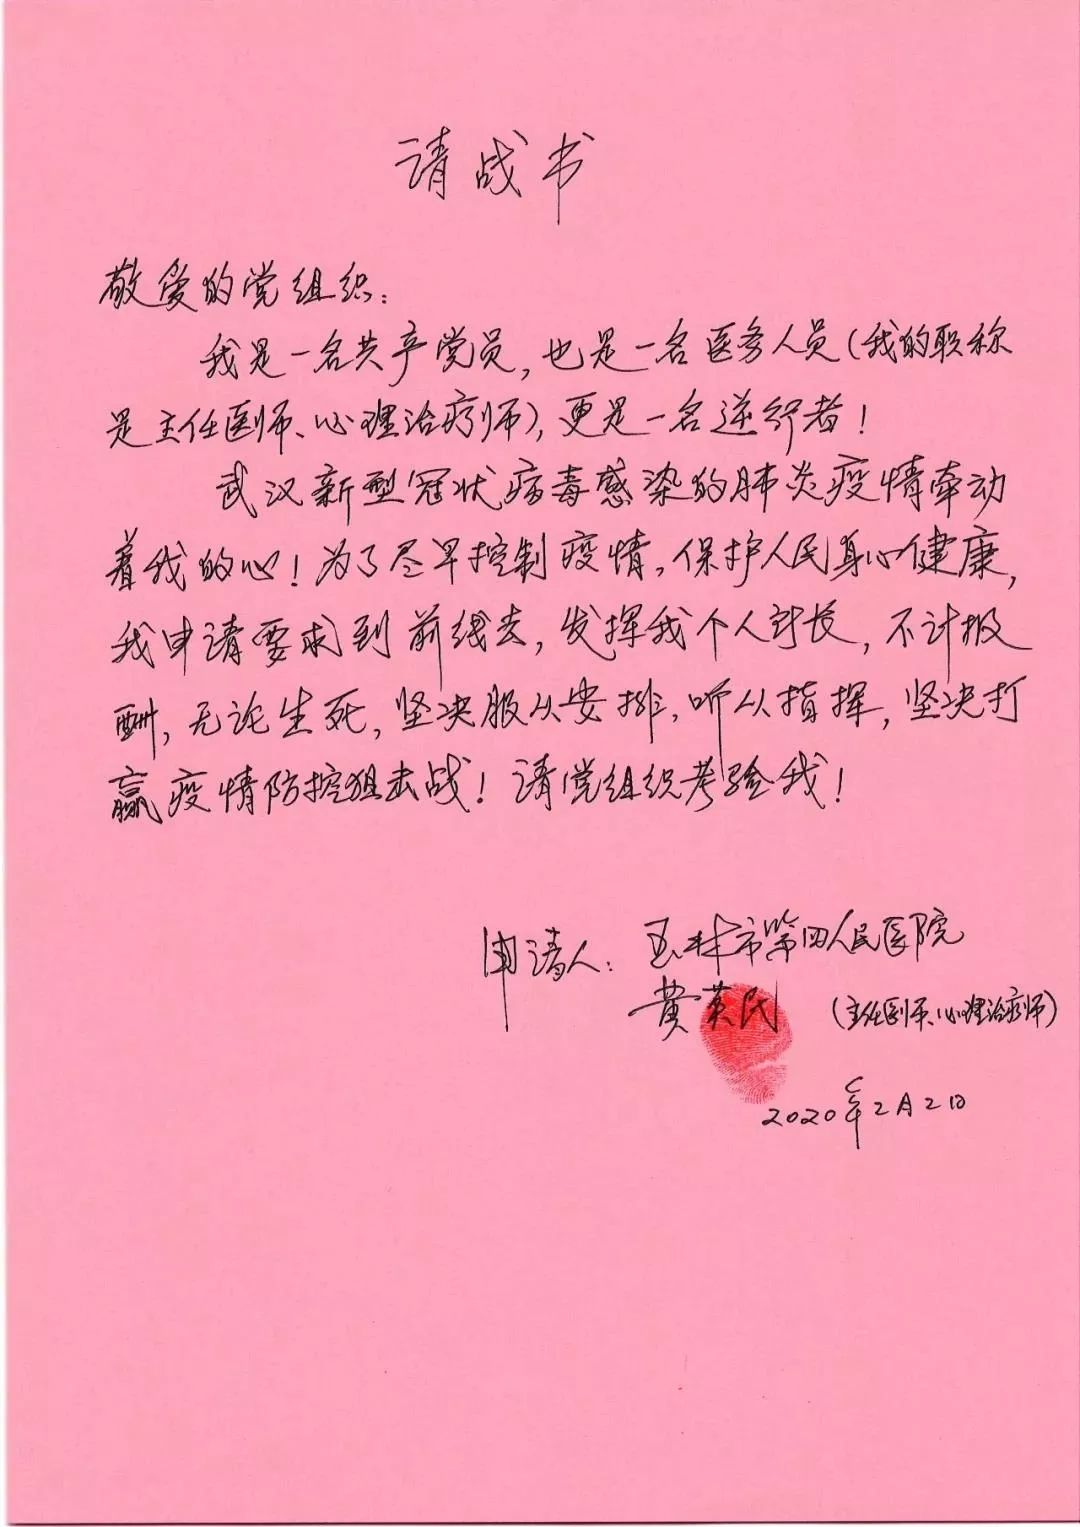 请战书
敬爱的党组织：
我是一名共产党员，也是一名医务人员（我的职称
是主任医师、心理治疗师），更是一名逆行者！
武汉新型冠状病毒感染的肺炎疫情牵动
着我的心！为了尽早控制疫情，保护人民身心健康，
我申请要求到前线去，发挥我个人专长，不计报
酬，无论生死，坚决服从安排，听从指挥，坚决打
赢疫情防控狙击战！请党组织考验我！
申请人：玉林市第四人民医院
黄英民（主任医师、心理治疗师）
2020年2月2日